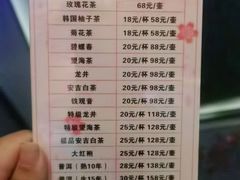 玫瑰花茶 68元/壶
韩国柚子茶 18元/杯 58元/壶
菊花茶 18元/杯 58元/壶
碧螺春 20元/杯 98元/壶
望海茶 20元/杯 98元/壶
龙井 20元/杯 98元/壶
安吉白茶 20元/杯 98元/壶
铁观音 20元/杯 98元/壶
特级龙井 25元/杯 118元/壶
特级望海茶 25元/杯 128元/壶
极品安吉白茶 25元/杯 128元/壶
大红袍 25元/杯 128元/壶
普洱（熟10年） 28元/杯 138元/壶
15年 30元/杯 158元/壶